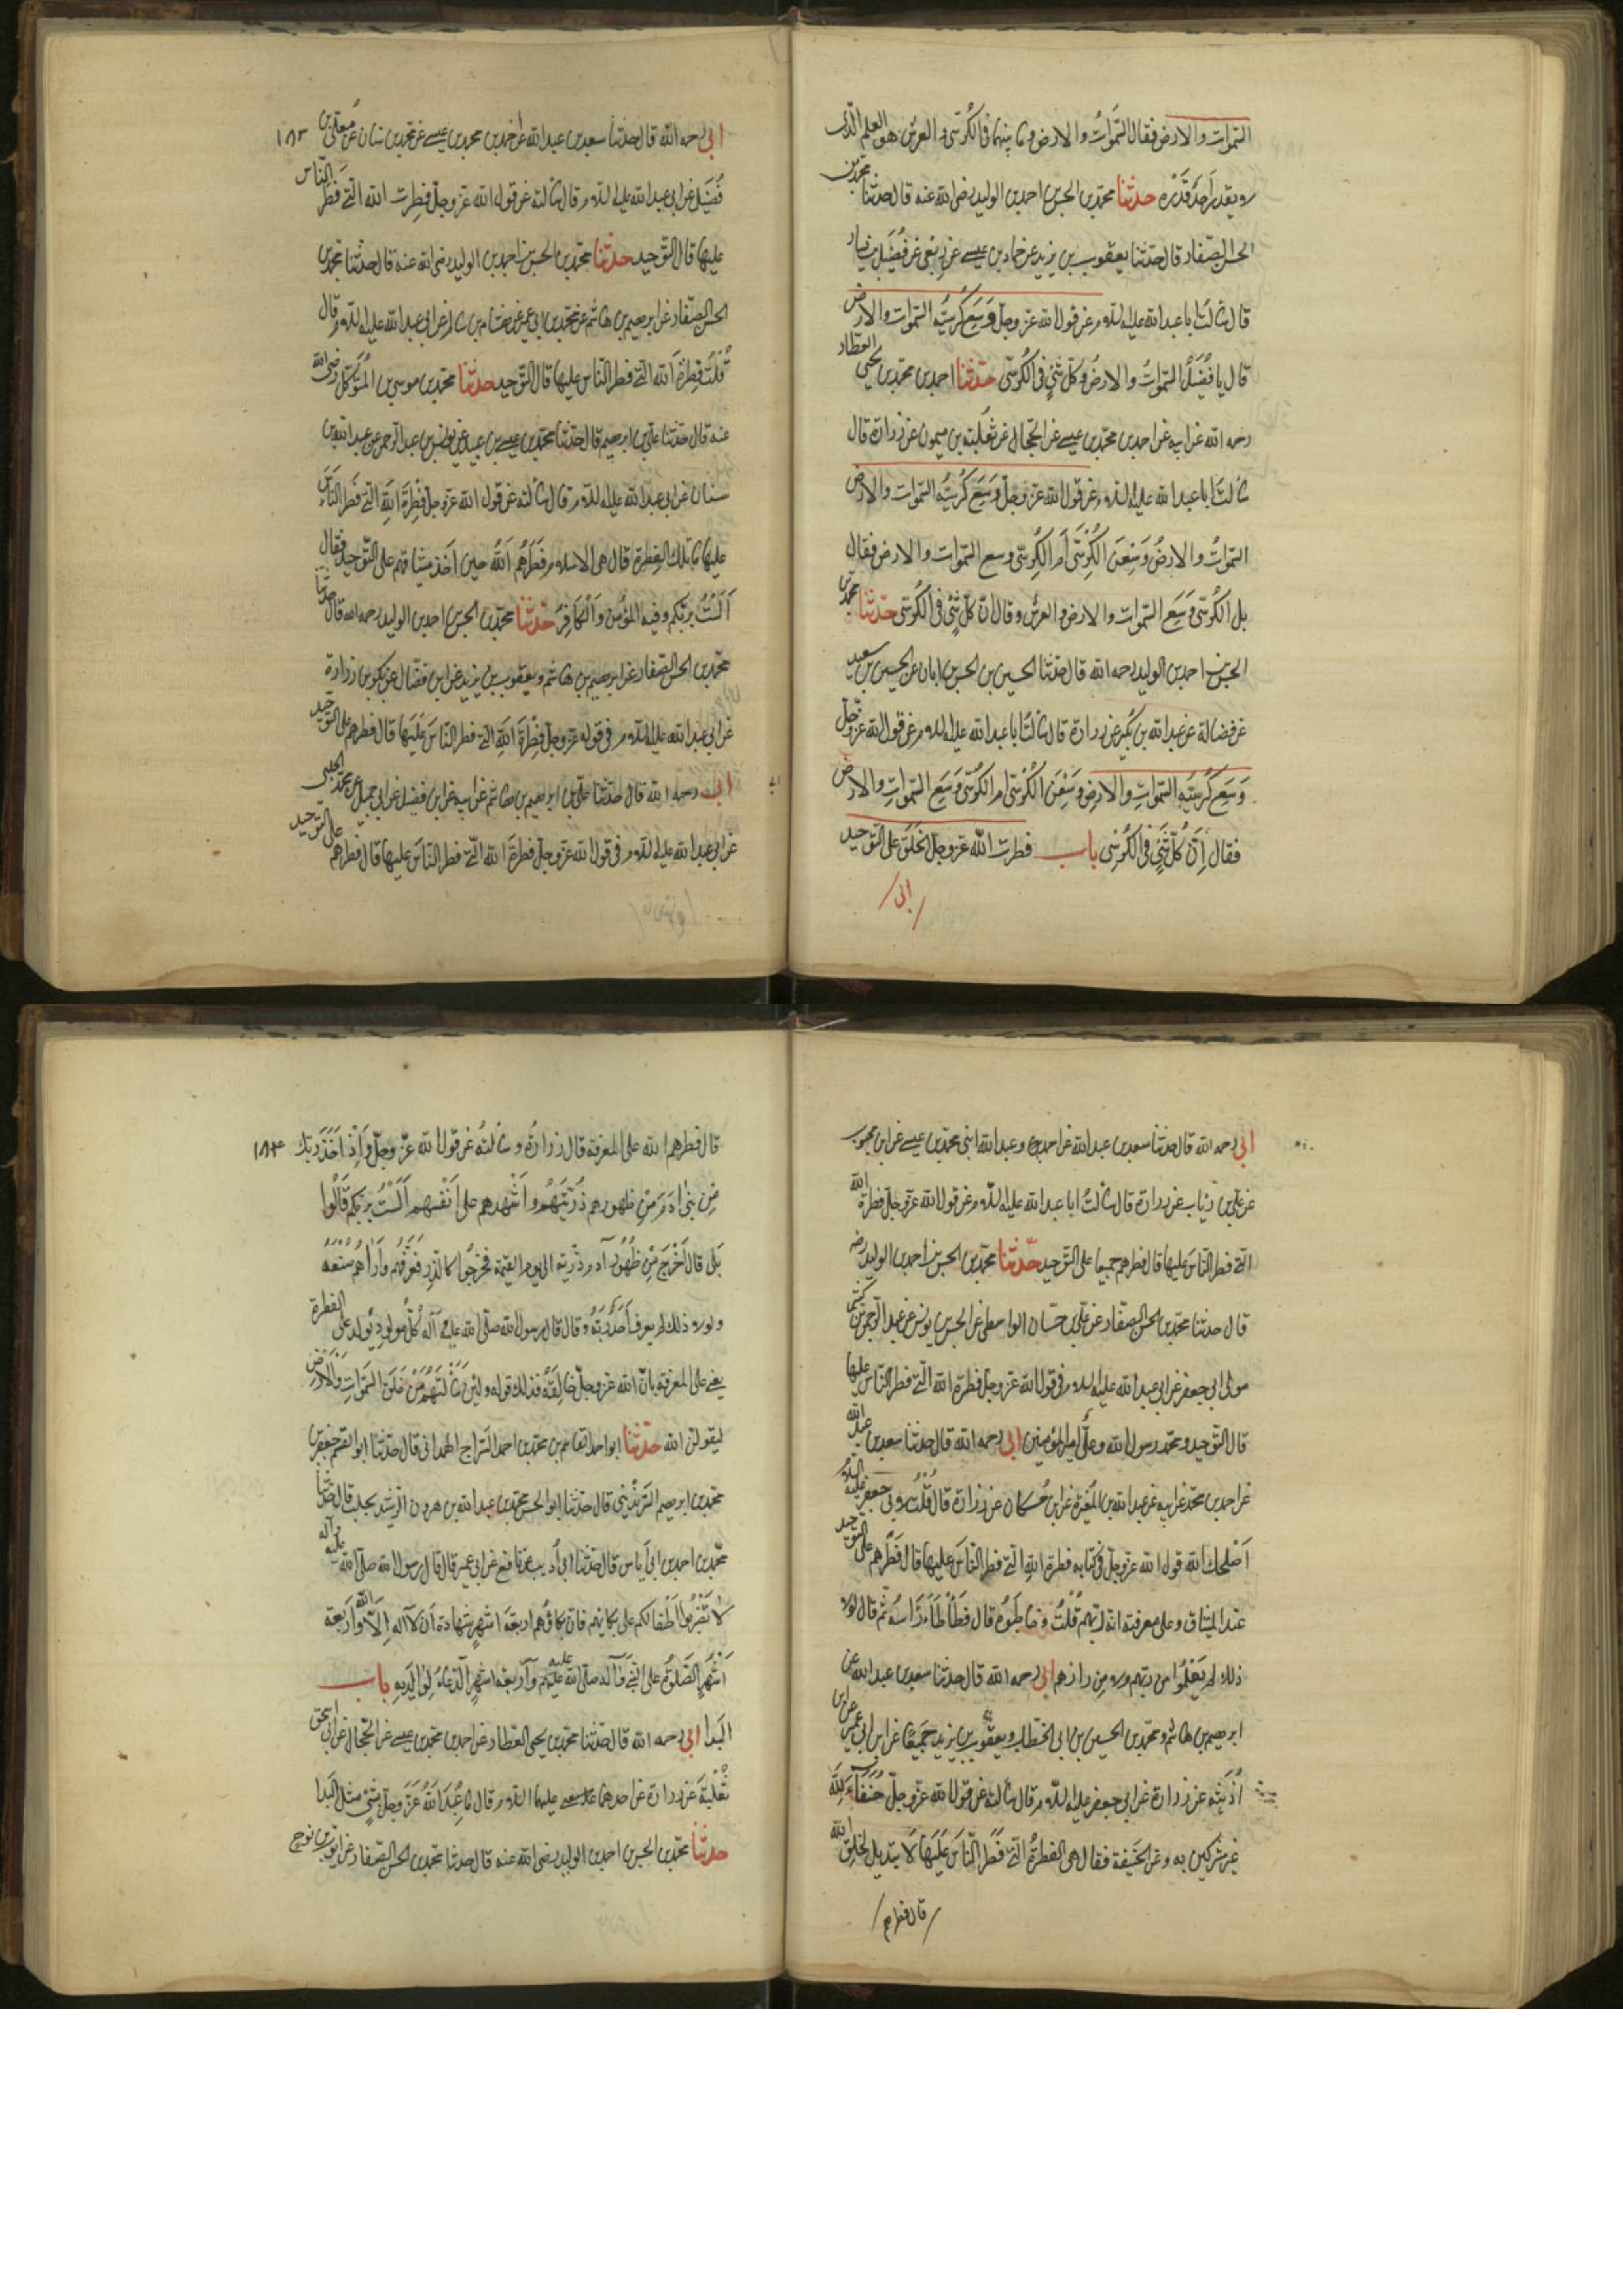 السموات والارض فقال السموات والارض وما بينهما فى الكرسى والعرش هو العلم الذى
لا يقدر احد قدره حدثنا محمد بن الحسن بن احمد بن الوليد رضى الله عنه قال حدثنا محمد بن
الحسن الصفار قال حدثنا يعقوب بن يزيد عن حماد بن عيسى عن ربعى عن فضيل بن يسار
قال سالت ابا عبد الله عليه السلام عن قول الله عز وجل وسع كرسيه السموات والارض
قال يا فضيل السموات والارض وكل شئ فى الكرسى حدثنا احمد بن محمد بن يحيى العطار
رحمه الله عن ابيه عن احمد بن محمد بن عيسى عن الحجال عن ثعلبة بن ميمون عن زرارة قال
سالت ابا عبد الله عليه السلام عن قول الله عز وجل وسع كرسيه السموات والارض
السموات والارض وسعن الكرسى ام الكرسى وسع السموات والارض فقال
بل الكرسى وسع السموات والارض والعرش وقال ان كل شئ فى الكرسى حدثنا محمد بن
الحسن بن احمد بن الوليد رحمه الله قال حدثنا الحسين بن الحسن بن ابان عن الحسين بن سعيد
عن فضالة عن عبد الله بن بكير عن زرارة قال سالت ابا عبد الله عليه السلام عن قول الله عز وجل
وسع كرسيه السموات والارض وسعن الكرسى ام الكرسى وسع السموات والارض
فقال ان كل شئ فى الكرسى باب فطرت الله عز وجل الخلق على التوحيد
ابى
ابى رحمه الله قال حدثنا سعد بن عبد الله عن احمد بن محمد بن عيسى عن محمد بن سنان عن بن ١٨٣
فضيل عن ابى عبد الله عليه السلام قال سالته عن قول الله عز وجل فطرت الله التى فطر الناس
عليها قال التوحيد حدثنا محمد بن الحسن بن احمد بن الوليد رضى الله عنه قال حدثنا محمد بن
الحسن الصفار عن ابرهيم بن هاشم عن محمد بن ابى عمير عن هشام بن سالم عن ابى عبد الله عليه السلام قال
قلت فطرة الله التى فطر الناس عليها قال التوحيد حدثنا محمد بن موسى بن المتوكل رضى الله
عنه قال حدثنا على بن ابرهيم قال حدثنا محمد بن عيسى بن عبيد عن يونس بن عبد الرحمن عن عبد الله بن
سنان عن ابى عبد الله عليه السلام قال سالته عن قول الله عز وجل فطرة الله التى فطر الناس
عليها ما تلك الفطرة قال هى الاسلام فطرهم الله حين اخذ ميثاقهم على التوحيد فقال
الست بربكم وفيه المؤمن والكافر حدثنا محمد بن الحسن بن احمد بن الوليد رحمه الله قال حدثنا
محمد بن الحسن الصفار عن ابرهيم بن هاشم ويعقوب بن يزيد عن ابن فضال عن بكير بن زرارة
عن ابى عبد الله عليه السلام فى قوله عز وجل فطرة الله التى فطر الناس عليها قال فطرهم على التوحيد
ابى رحمه الله قال حدثنا على بن ابرهيم بن هاشم عن ابيه عن ابن فضيل عن ابى جميل عن محمد الحلبى
عن ابى عبد الله عليه السلام فى قول الله عز وجل فطرة الله التى فطر الناس عليها قال فطرهم على التوحيد
ابى رحمه الله قال حدثنا سعد بن عبد الله عن احمد وعبد الله ابنى محمد بن عيسى عن ابن محبوب
عن على بن رئاب عن زرارة قال سالت ابا عبد الله عليه السلام عن قول الله عز وجل فطرة الله
التى فطر الناس عليها قال فطرهم جميعا على التوحيد حدثنا محمد بن الحسن بن احمد بن الوليد رضه
قال حدثنا محمد بن الحسن الصفار عن على بن حسان الواسطى عن الحسن بن يونس عن عبد الرحمن بن كثير
مولى ابى جعفر عن ابى عبد الله عليه السلام فى قول الله عز وجل فطرة الله التى فطر الناس عليها
قال التوحيد ومحمد رسول الله وعلى امير المؤمنين ابى رحمه الله قال حدثنا سعد بن عبد الله
عن احمد بن محمد عن ابيه عن عبد الله بن المغيرة عن ابن مسكان عن زرارة قال قلت لابى جعفر عليه السلام
اصلحك الله قول الله عز وجل فى كتابه فطرة الله التى فطر الناس عليها قال فطرهم على التوحيد
عند الميثاق وعلى معرفته انه ربهم قلت وخاطبوه قال فطاطا راسه ثم قال لولا
ذلك لم يعلموا من ربهم ولا من رازقهم ابى رحمه الله قال حدثنا سعد بن عبد الله عن
ابرهيم بن هاشم ومحمد بن الحسين بن ابى الخطاب ويعقوب بن يزيد جميعا عن ابن ابى عمير عن ابن
اذينة عن زرارة عن ابى جعفر عليه السلام قال سالته عن قول الله عز وجل حنفاء لله
غير مشركين به وعن الحنيفية فقال هى الفطرة التى فطر الناس عليها لا تبديل لخلق الله
قال فطرهم
قال فطرهم الله على المعرفة قال زرارة وسالته عن قول الله عز وجل واذ اخذ ربك ١٨٤
من بنى ادم من ظهورهم ذريتهم واشهدهم على انفسهم الست بربكم قالوا
بلى قال اخرج من ظهور آدم ذريته الى يوم القيمة فخرجوا كالذر فعرفهم واراهم صنعه
ولولا ذلك لم يعرف احد ربه وقال قال رسول الله صلى الله عليه وآله كل مولود يولد على الفطرة
يعنى على المعرفة بان الله عز وجل خالقه فذلك قوله ولئن سالتهم من خلق السموات والارض
ليقولن الله حدثنا ابو احمد القاسم بن محمد بن احمد السراج الهمدانى قال حدثنا ابو القسم جعفر بن
محمد بن ابرهيم قال حدثنا ابو الحسن محمد بن عبد الله بن هرون الرشيد بحلب قال حدثنا
محمد بن احمد بن ابى اياس قال حدثنا ابى عن نافع عن ابى عمر قال قال رسول الله صلى الله عليه وآله
لا تضربوا اطفالكم على بكائهم فان بكائهم اربعة اشهر شهادة ان لا اله الا الله واربعة
اشهر الصلوة على النبى وآله صلى الله عليهم واربعة اشهر الدعاء لوالديه باب
البدا ابى رحمه الله قال حدثنا محمد بن يحيى العطار عن احمد بن محمد بن عيسى عن الحجال عن ابى اسحق
ثعلبة عن زرارة عن احدهما عليهما السلام قال ما عبد الله عز وجل بشئ مثل البدا
حدثنا محمد بن الحسن بن احمد بن الوليد رضى الله عنه قال حدثنا محمد بن الحسن الصفار عن ايوب بن نوح